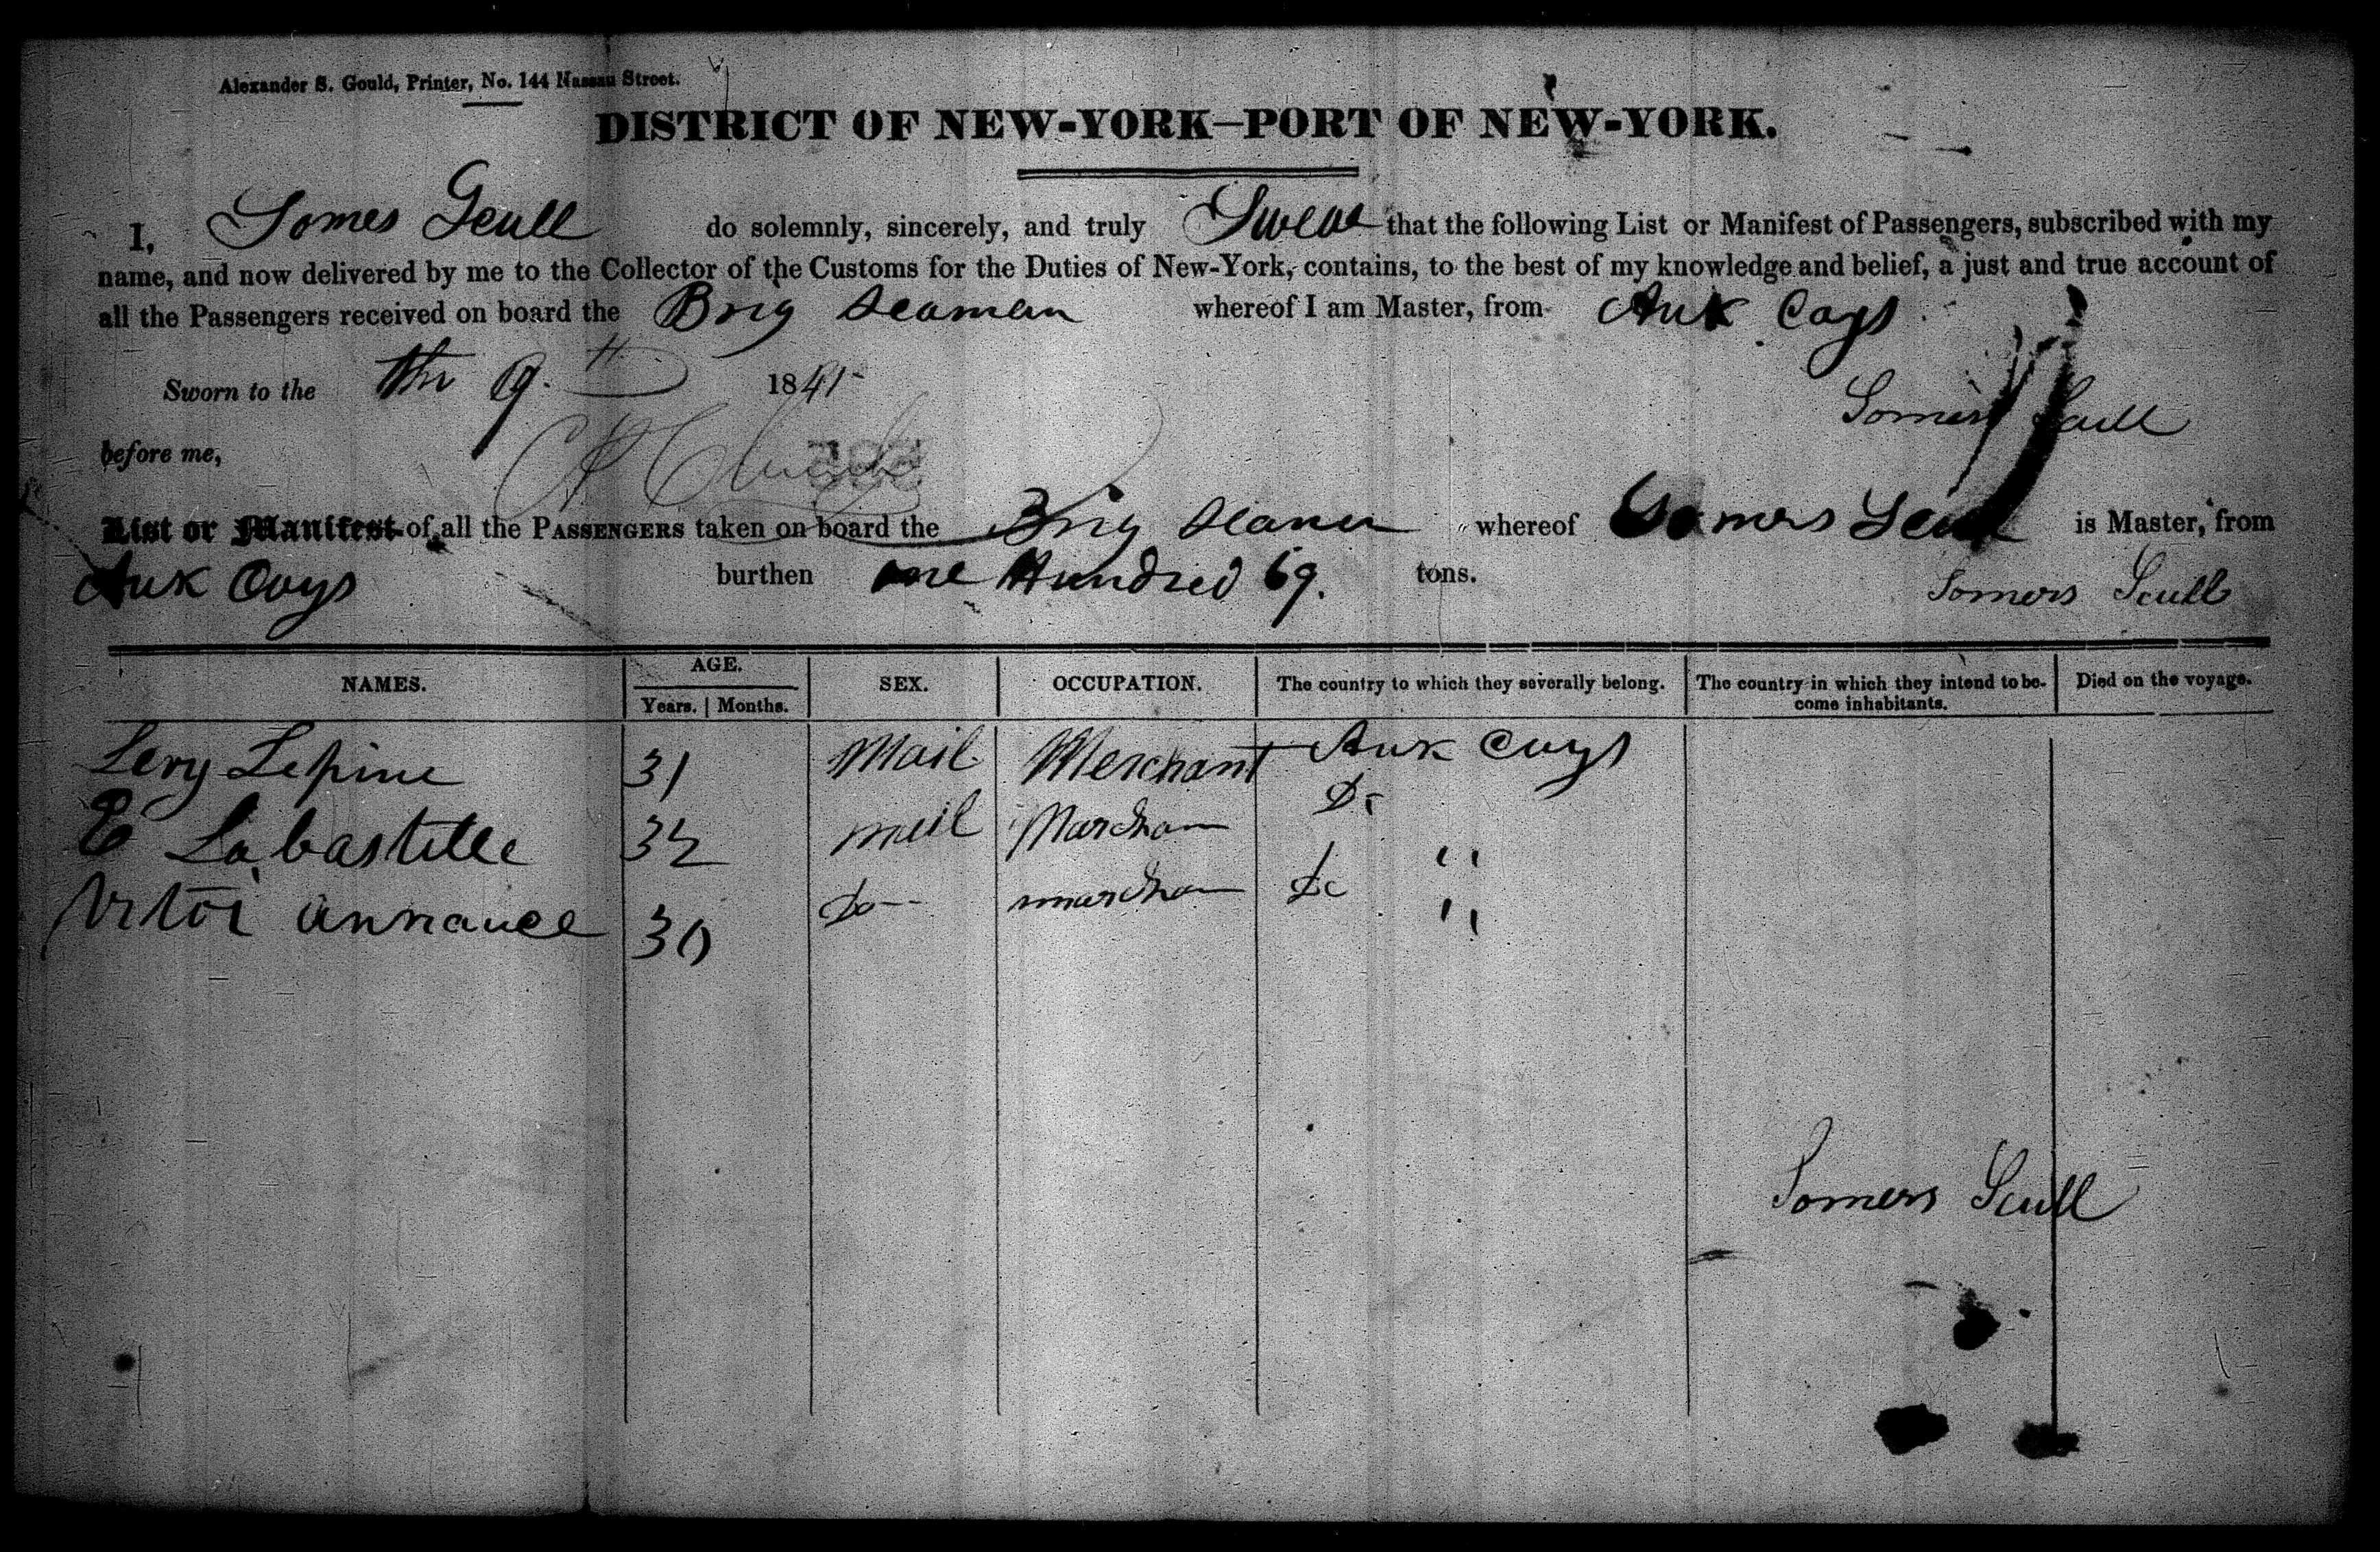 Alexander S. Gould, Printer, No. 144 Nassau Street.
DISTRICT OF NEW-YORK—PORT OF NEW-YORK.
I, Somes Scull do solemnly, sincerely, and truly Swear that the following List or Manifest of Passengers, subscribed with my
name, and now delivered by me to the Collector of the Customs for the Duties of New-York, contains, to the best of my knowledge and belief, a just and true account of
all the Passengers received on board the Brig Seaman whereof I am Master, from Aux Cays
Sworn to the the 9th 1841
Somers Scull
before me,
List or Manifest of all the PASSENGERS taken on board the Brig Seamen whereof Somers Scull is Master, from
Aux Cays burthen one Hundred 69. tons.
Somers Scull
NAMES. AGE. SEX. OCCUPATION. The country to which they severally belong. The country in which they intend to be- Died on the voyage.
Years. Months. come inhabitants.
Levy Lepine 31 Mail Merchant Aux Cays
E Labastille 32 meil Marchan Do "
Victoi annance 30 Do marchan Do "
Somers Scull